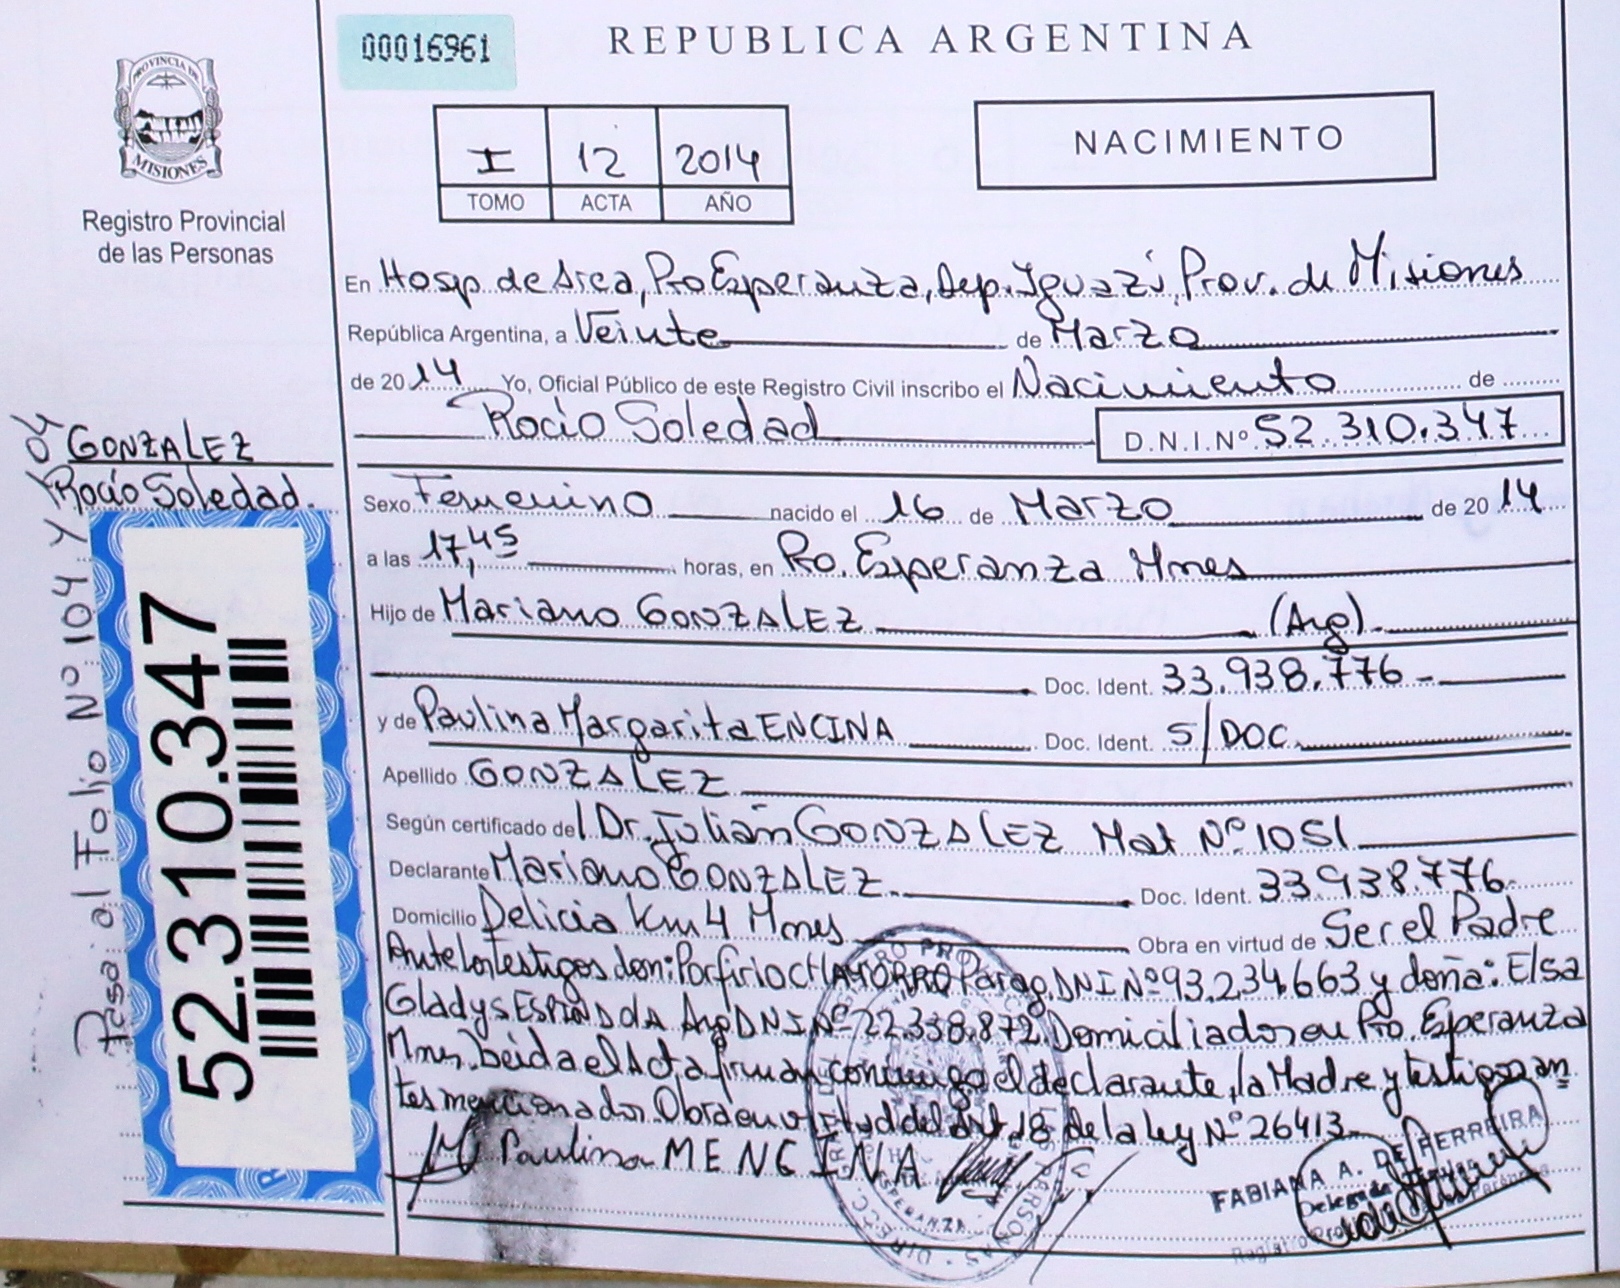 00016961
REPUBLICA ARGENTINA
PROVINCIA DE
MISIONES
Registro Provincial
de las Personas
I 12 2014
TOMO ACTA AÑO
NACIMIENTO
En Hosp de Area, Pto Esperanza, Dep. Iguazú, Prov. de Misiones
República Argentina, a Veinte de Marzo
de 2014 Yo, Oficial Público de este Registro Civil inscribo el Nacimiento de
Rocio Soledad D.N.I. Nº 52.310.347
GONZALEZ
Rocio Soledad.
Sexo Femenino nacido el 16 de Marzo de 2014
a las 17,45 horas, en Pto. Esperanza Mnes
Hijo de Mariano GONZALEZ (Arg).
Doc. Ident. 33.938.776
y de Paulina Margarita ENCINA Doc. Ident. S/DOC.
Apellido GONZALEZ
Según certificado del Dr. Julián GONZALEZ Mat Nº 1051
Declarante Mariano GONZALEZ. Doc. Ident. 33.938.776.
Domicilio Delicia Km 4 Mnes Obra en virtud de Ser el Padre
Ante los testigos don: Porfirio CHAMORRO Parag. DNI Nº 93.234.663 y doña: Elsa
Gladys ESPINDOLA Arg DNI Nº 22.338.872. Domiciliados en Pto. Esperanza
Mnes. Leida el Acta firman conmigo el declarante, la Madre y testigos an
tes mencionados. Obra en virtud del Art 18 de la ley Nº 26413.
Paulina M ENCINA
FABIANA A. DE FERREIRA
Delegada
52.310.347
Pasa al Folio Nº 104 Y